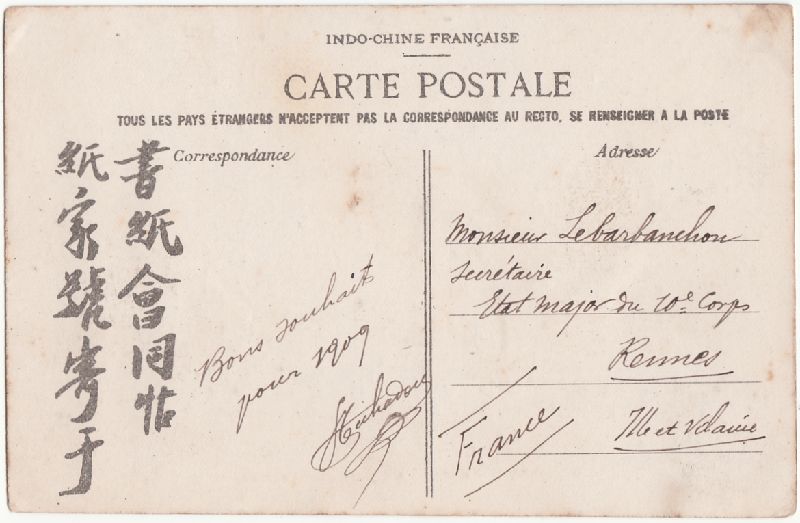 INDO-CHINE FRANÇAISE
CARTE POSTALE
TOUS LES PAYS ÉTRANGERS N'ACCEPTENT PAS LA CORRESPONDANCE AU RECTO, SE RENSEIGNER A LA POSTE
Correspondance
書紙會同帖
紙家號寄于
Bons souhait
pour 1909
Adresse
Monsieur Lebarbanchon
Secrétaire
Etat Major du 10e Corps
Rennes
Ille et Vilaine
France